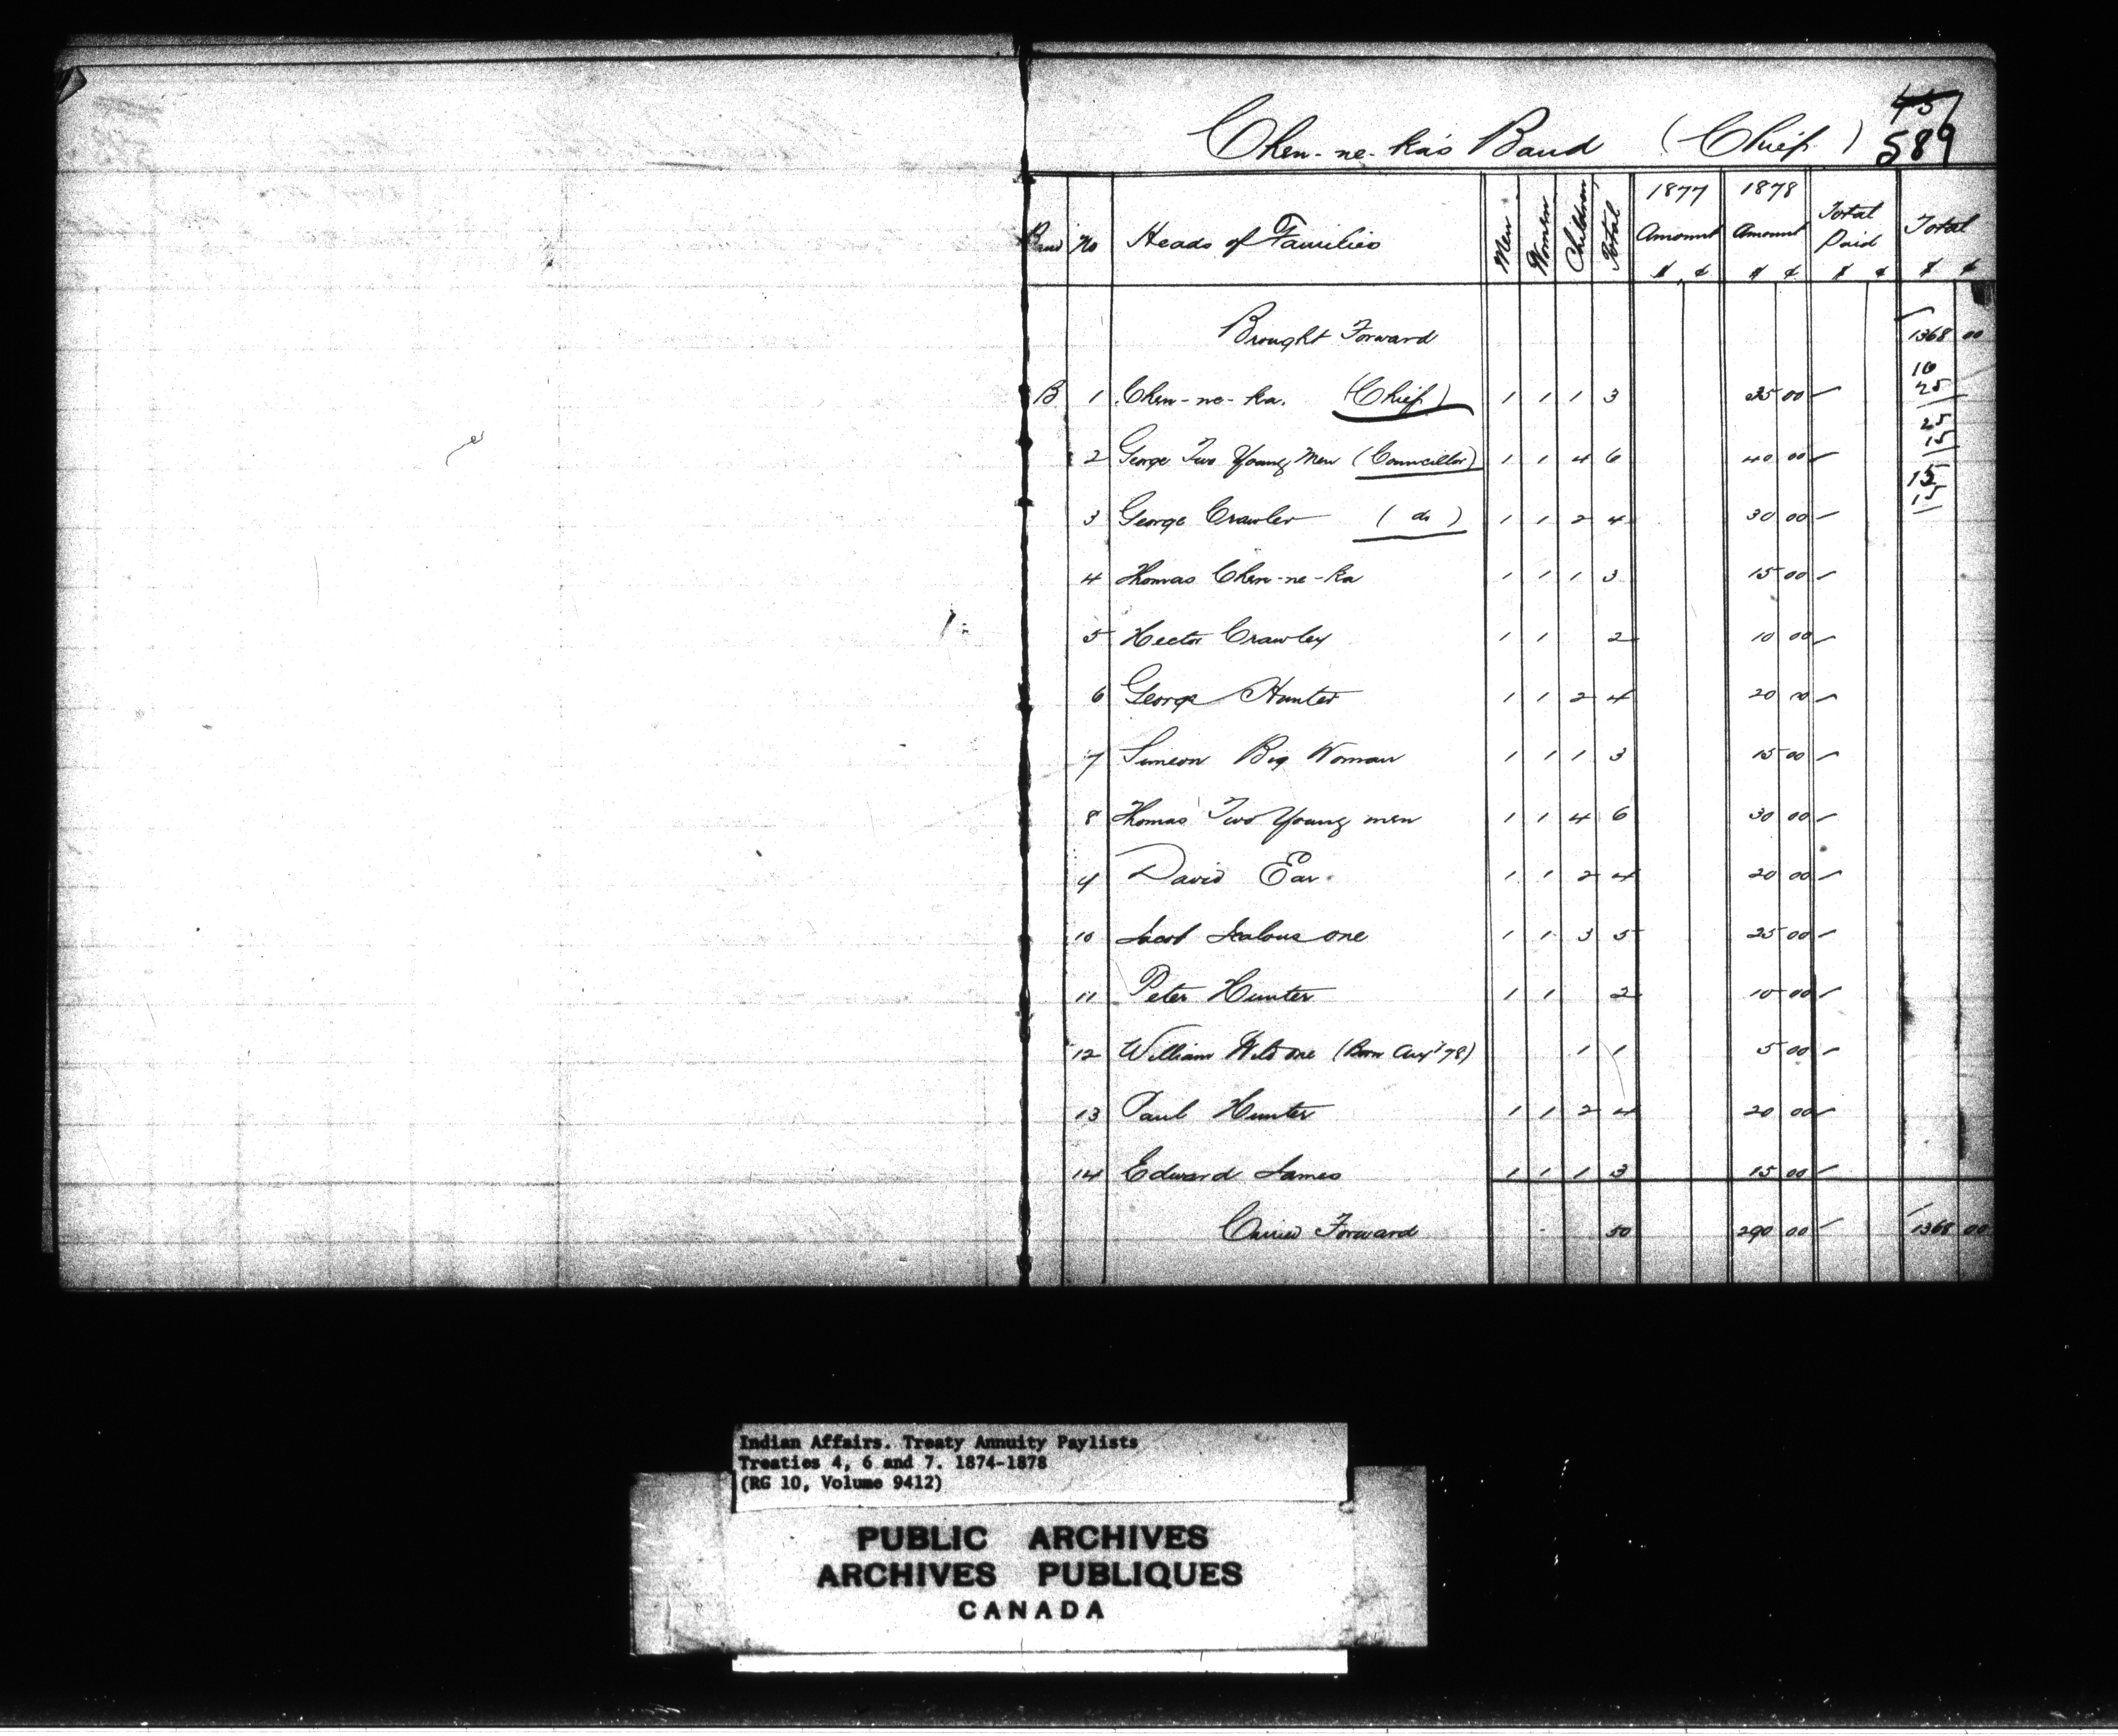 457
589
Chen-ne-ka's Band (Chief)
Band No Heads of Families Men Women Children Total 1877 Amount $ ¢ 1878 Amount $ ¢ Total Paid $ ¢ Total $ ¢
Brought Forward 1368 00
B 1 Chen-ne-ka. (Chief) 1 1 1 3 35 00
10
25
2 George Two Young Men (Councillor) 1 1 4 6 40 00
25
15
3 George Crawler (do) 1 1 2 4 30 00
15
15
4 Thomas Chen-ne-ka 1 1 1 3 15 00
5 Hector Crawley 1 1 2 10 00
6 George Hunter 1 1 2 4 20 00
7 Simeon Big Woman 1 1 1 3 15 00
8 Thomas Two Young men 1 1 4 6 30 00
9 David Ear 1 1 2 4 20 00
10 Jacob Jealous one 1 1 3 5 25 00
11 Peter Hunter 1 1 2 10 00
12 William Wild one (Born Augt 78) 1 1 5 00
13 Paul Hunter 1 1 2 4 20 00
14 Edward James 1 1 1 3 15 00
Carried Forward 50 290 00 1368 00
Indian Affairs. Treaty Annuity Paylists
Treaties 4, 6 and 7. 1874-1878
(RG 10, Volume 9412)
PUBLIC ARCHIVES
ARCHIVES PUBLIQUES
CANADA